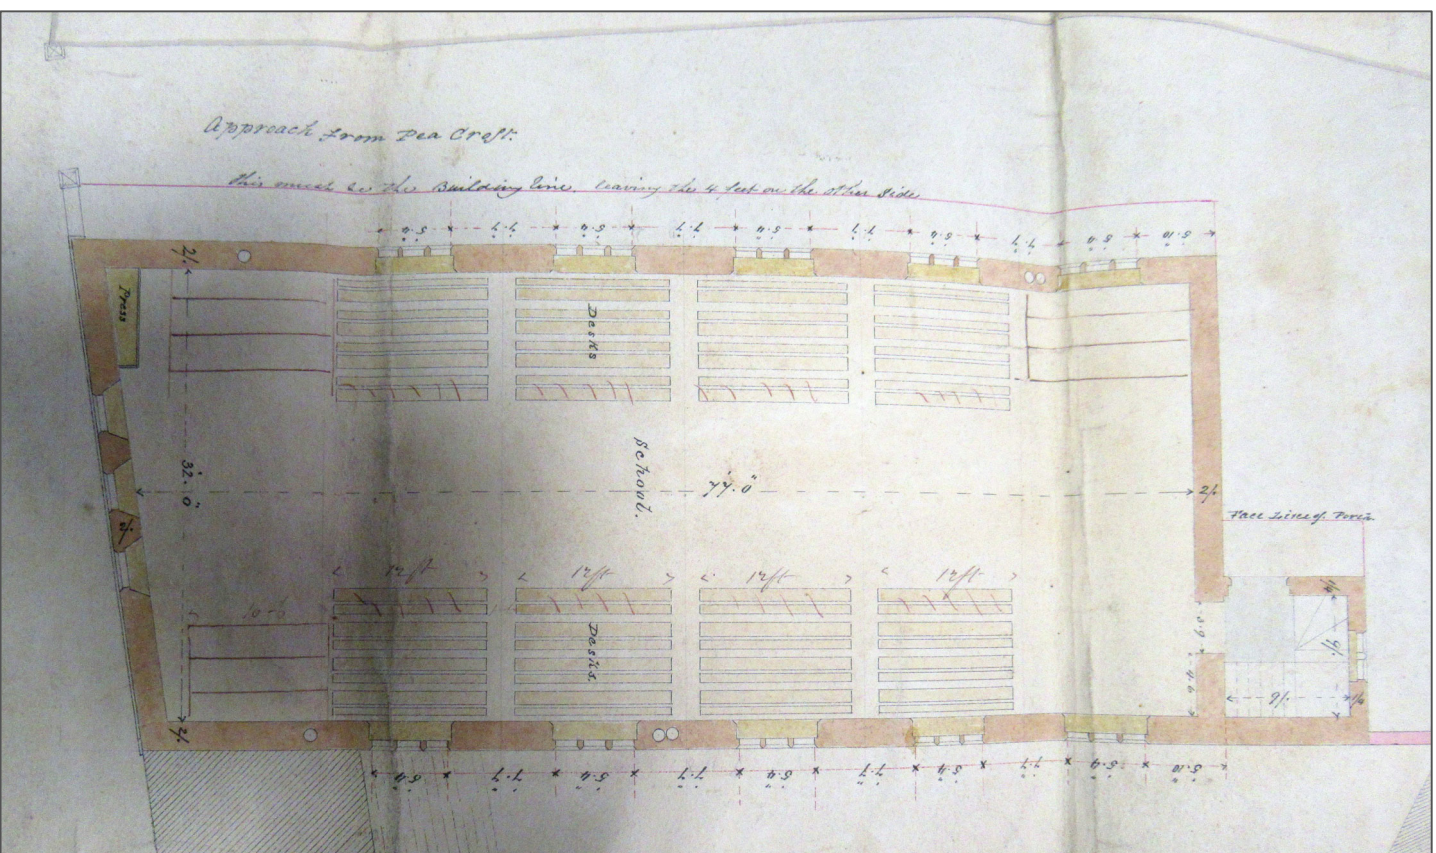 Approach from Pea Croft.
This must be the Building line, leaving the 4 feet on the other side
5.4 7.7 5.4 7.7 5.4 7.7 5.4 7.7 5.4 5.10
2/.
Press
Desks
32.0"
School.
77.0"
2/.
2/.
Face Line of
12ft 12ft 12ft 12ft
10-0
Desks.
3.9
4.6
9/.
9/.
2/.
5.4 7.7 5.4 7.7 5.4 7.7 5.4 7.7 5.4 5.10